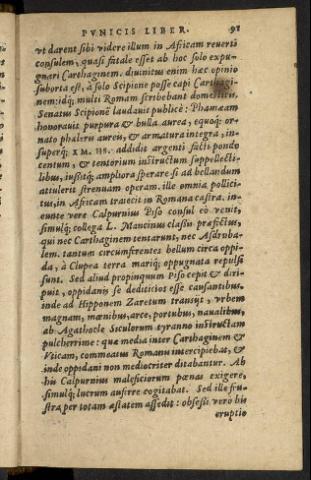 PVNICIS LIBER. 91
vt darent sibi videre illum in Africam reuerti
consulem, quasi fatale esset ab hoc solo expu-
gnari Carthaginem. diuinitus enim hæc opinio
suborta est, à solo Scipione posse capi Carthagi-
nem: idq; multi Romam scribebant domesticis.
Senatus Scipionē laudauit publicè: Phamæam
honorauit purpura & bulla aurea, equoq; or-
nato phaleris aureis, & armatura integra, in-
superq; XM. IIS. addidit argenti facti pondo
centum, & tentorium instructum suppellecti-
libus, iussitq; ampliora sperare si ad bellandum
attulerit strenuam operam. ille omnia pollici-
tus, in Africam traiecit in Romana castra. in-
eunte vere Calpurnius Piso consul eò venit,
simulq; collega L. Mancinus classis præfectus,
qui nec Carthaginem tentarunt, nec Asdruba-
lem. tantum circumferentes bellum circa oppi-
da, à Clupea terra mariq; oppugnata repulsi
sunt. Sed aliud propinquum Piso cepit & diri-
puit, oppidanis se dediticios esse causantibus.
inde ad Hipponem Zaretum transijt, vrbem
magnam, mœnibus, arce, portubus, naualibus,
ab Agathocle Siculorum tyranno instructam
pulcherrime: quæ media inter Carthaginem &
Vticam, commeatus Romanū intercipiebat, &
inde oppidani non mediocriter ditabantur. Ab
his Calpurnius maleficiorum pœnas exigere,
simulq; lucrum auferre cogitabat. Sed ille fru-
stra per totam æstatem assedit: obsessi vero bis
eruptio